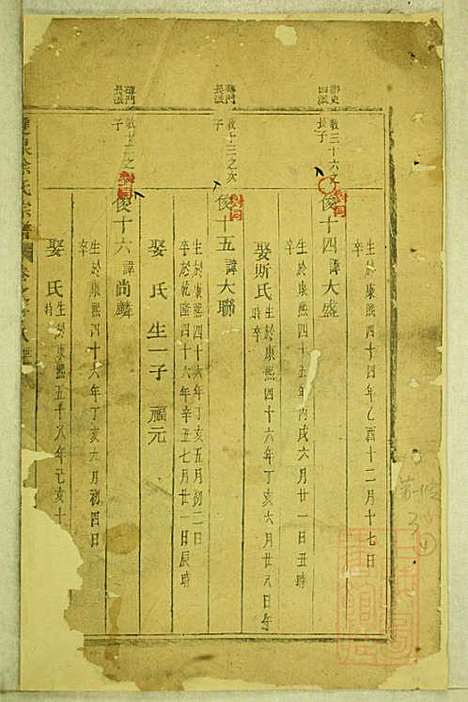 生於康熙四十四年乙酉十二月十七日
教三十六之
長子
俊十四 諱大盛
生於康熙四十五年丙戌六月廿一日丑時
卒
娶斯氏 生於康熙四十六年丁亥六月廿八日午時
卒
教十三之次子
長派
俊十五 諱大聯
生於康熙四十六年丁亥五月初二日
卒於乾隆四十六年辛丑七月廿一日辰時
娶 氏 生一子 福元
教十三之
子
長派
俊十六 諱尚麟
生於康熙四十六年丁亥六月初四日
娶 氏 生於康熙五十八年己亥十
時
徐氏宗譜